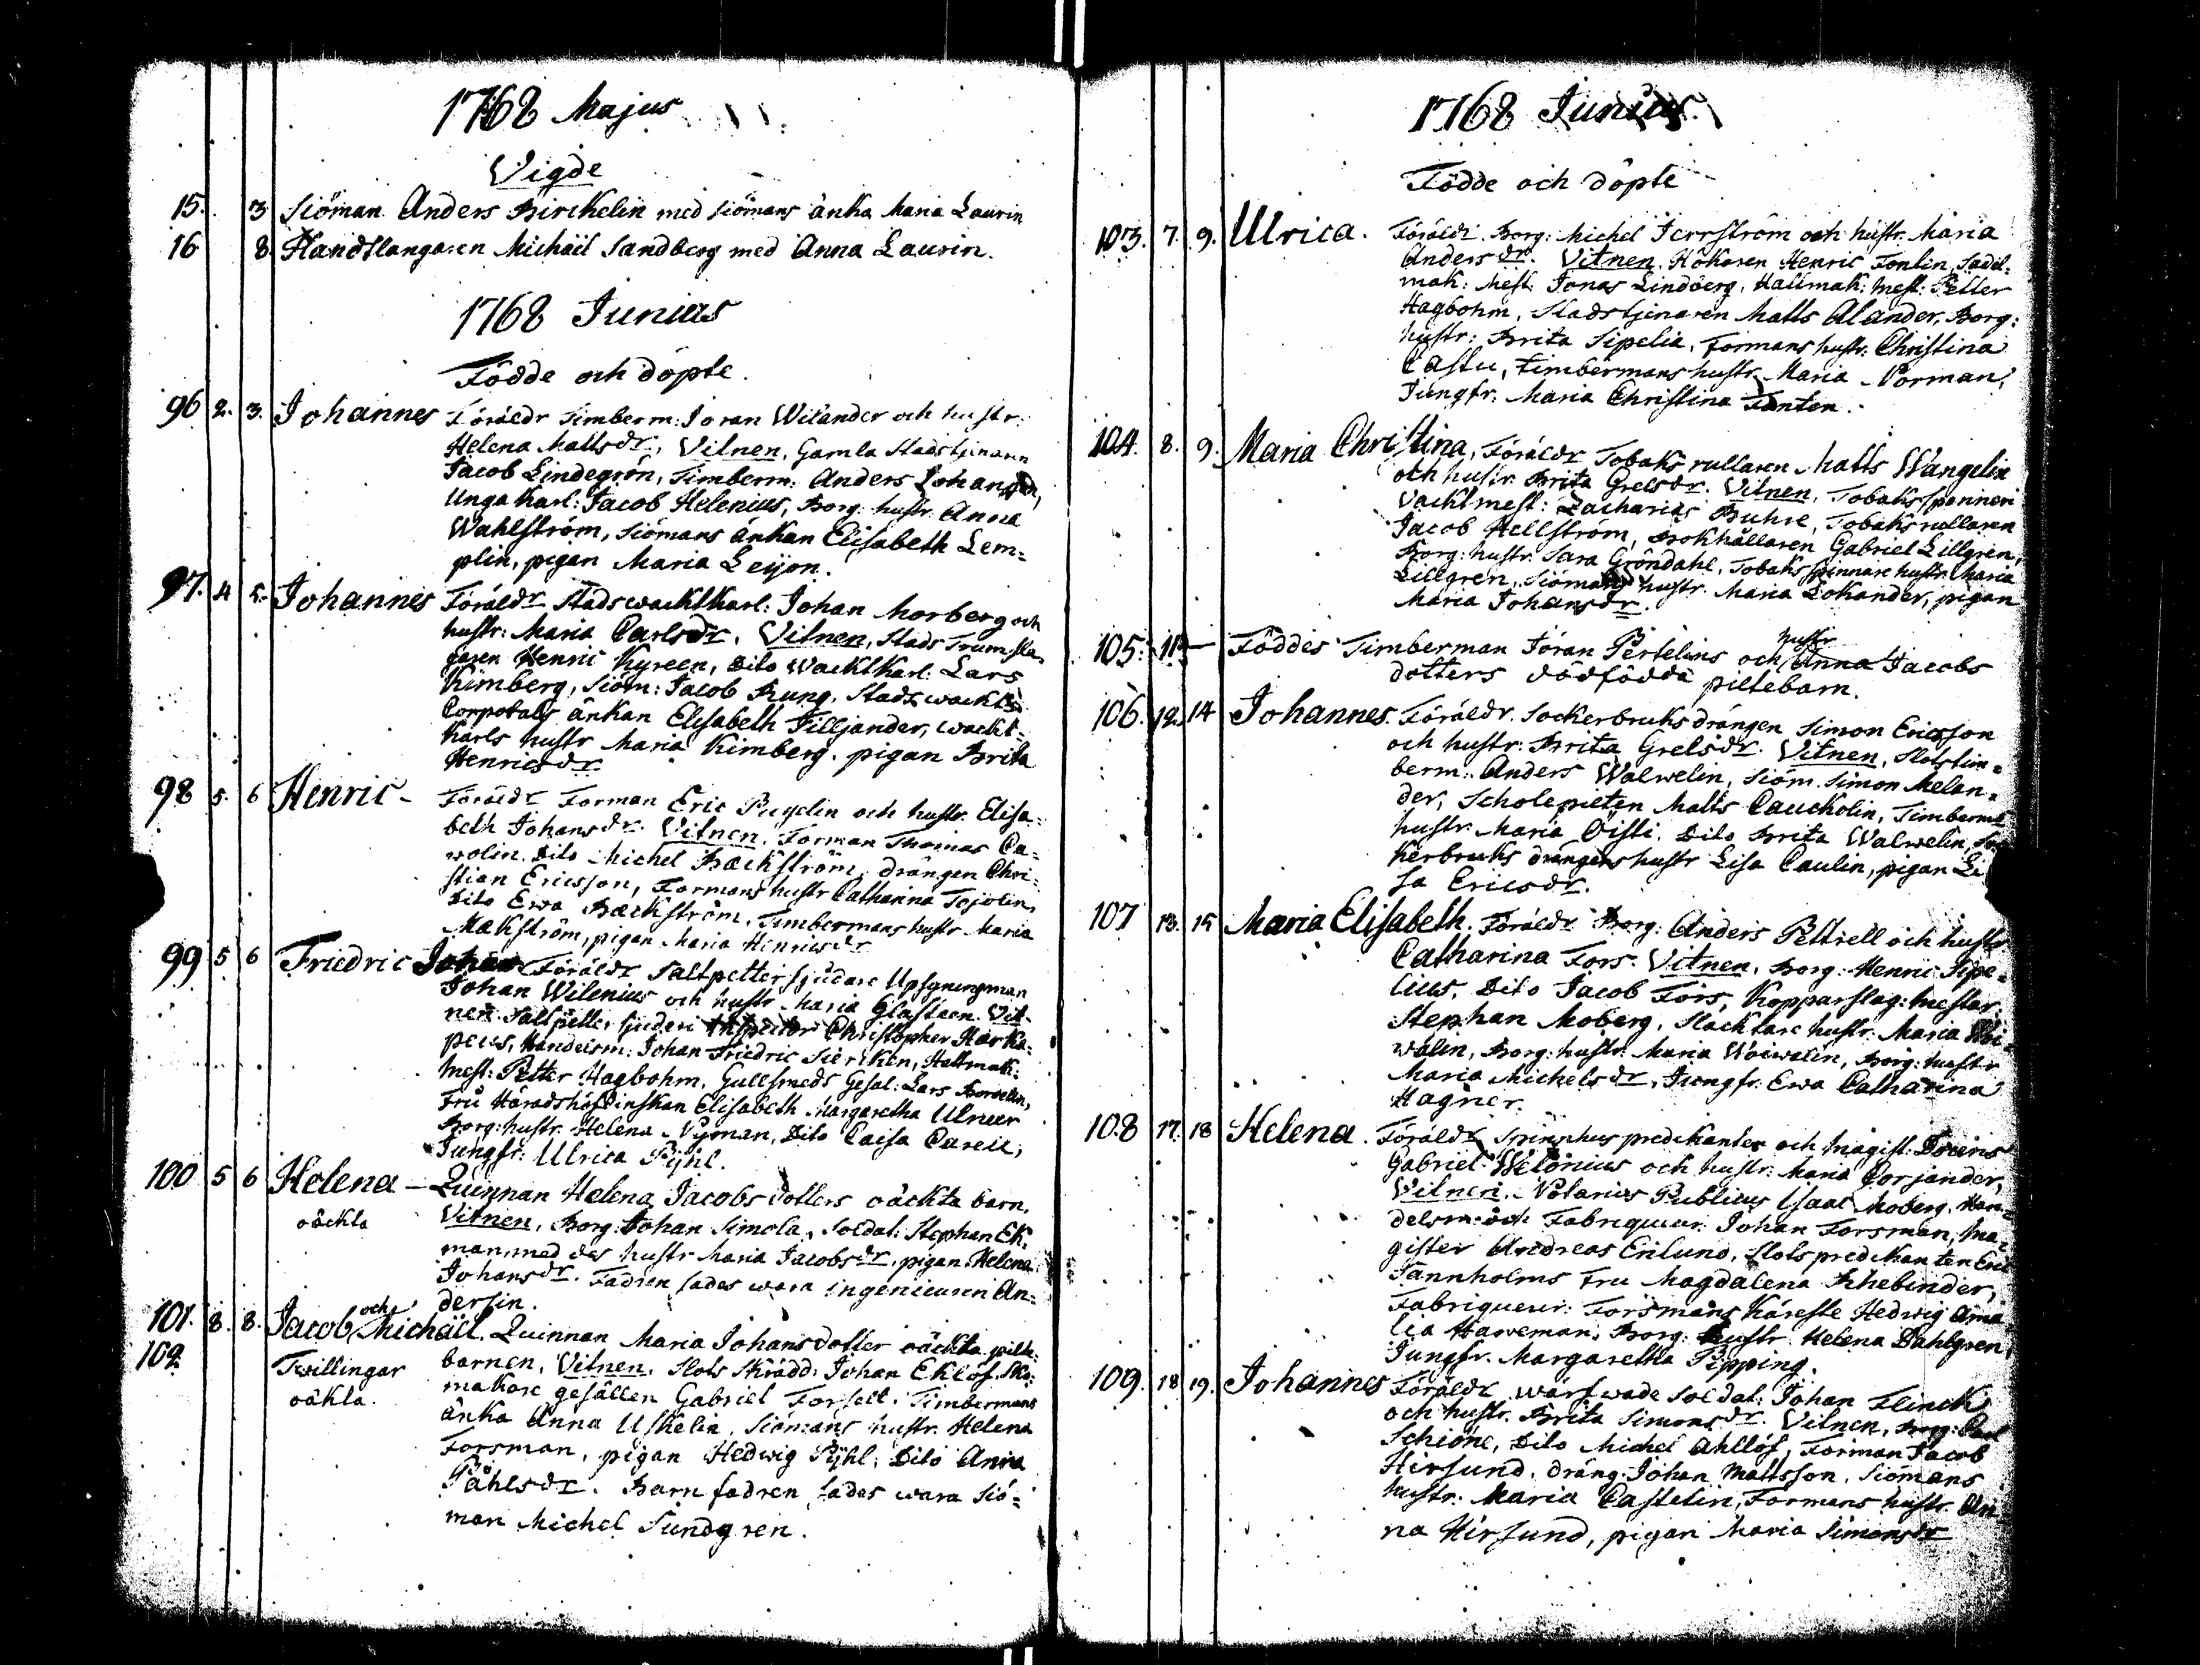 1768 Majus
Vigde
15. 3 Siöman Anders Birckelin med siömans änka Maria Laurin
16 8. Handtlangaren Michäel Sandberg med Anna Laurin.
1768 Junius
Födde och döpte.
96 2. 3. Johannes Föräldr Timberm: Joran Wilander och hustr:
Helena Mattsdr., Vitnen, Gamla Stadstjenaren
Jacob Lindegrön, Timberm: Anders Lohander,
Unga Karl: Jacob Helenius, Borg: hustr. Anna
Wahlström, Siömans änkan Elisabeth Lem=
plin, pigan Maria Leijon.
97. 4 5. Johannes Föräldr Stadswacktkarl: Johan Morberg och
hustr: Maria Carlsdr. Vitnen, Stads Trumsla=
garen Henric Kyreen, Dito Wacktkarl: Lars
Kimberg, Siöm: Jacob Rung, Stadswackts
Corporals änkan Elisabeth Filljander, wackt=
karls hustr Maria Kimberg. pigan Brita
Henricsdr.
98 5. 6 Henric - Föräldr Forman Eric Pugelin och hustr. Elisa=
beth Johansdr. Vitnen. Forman Thomas Ca=
wolin. Dito Michel Backström, drängen Chri=
stian Ericsson, Formans hustr Catharina Tojolin,
Dito Ewa Backström. Timbermans hustr Maria
Mackström, pigan Maria Henricsdr
99 5 6 Friedric Johan Föräldr Saltpettersjudare Upsyningman
Johan Wilenius och hustr Maria Glasteen. Vit=
nen. Saltpetter sjuderi Inspector Christopher Harka=
peus, Handelsm: Johan Friedric Siercken, Hattmak:
mest: Petter Hagbohm, Gullsmeds Gesäl: Lars Borgelin,
Fru Häradshöfdinskan Elisabeth Margaretha Ulneer
Borg: hustr. Helena Nyman, Dito Caisa Carell,
Jungfr: Ulrica Pijhl.
100 5 6 Helena - Quinnan Helena Jacobs dotters oäckta barn,
oäckta Vitnen, Borg: Johan Simola, Soldat: Stephan Ek=
man, med des hustr Maria Jacobsdr, pigan Helena
Johansdr. Fadren sades wara Ingenieuren An=
dersin.
101. 8. 8. Jacob och Michäel. Quinnan Maria Johansdotter oäckta pilte
102 Twillingar barnen, Vitnen, Slots Skrädd: Johan Eklöf, Sko=
oäkta. makare gesällen Gabriel Forsell. Timbermans
änka Anna Uskelin, Siömans hustr. Helena
Forsman, pigan Hedwig Pijhl, Dito Anna
Påhlsdr. Barnfadren sades wara Siö=
man Michel Sundgren.
1768 Junius.
Födde och döpte
103. 7. 9. Ulrica. Föräldr. Borg: Michel Jerrström och hustr. Maria
Andersdr. Vitnen. Hökaren Henric Fonlin, Sadel=
mak: Mest: Jonas Lindberg, Hattmak: Mest: Petter
Hagbohm, Stadstjenaren Matts Alander, Borg:
hustr: Brita Sipelia, Formans hustr: Christina
Castu, Timbermans hustr. Maria Norman,
Jungfr: Maria Christina Fonten.
104. 8. 9. Maria Christina, Föräldr Tobaks rullaren Matts Wangelin
och hustr. Brita Grelsdr. Vitnen, Tobaks spanneri
Vacktmest: Zacharias Buhre, Tobaksrullaren
Jacob Hellström, Bokhållaren Gabriel Lillgren,
Borg: hustr: Sara Gröndahl, Tobaks spinnare hustr. Maria
Lillgren, Siömans hustr. Maria Lohander, pigan
Maria Johansdr.
105. 11 - Föddes Timberman Jöran Pertelius och hustr Anna Jacobs
dotters dödfödda piltebarn.
106. 12. 14 Johannes. Föräldr. Sockerbruks drängen Simon Ericsson
och hustr: Brita Grelsdr. Vitnen, Slotstim=
berm: Anders Walwelin, Siöm. Simon Melan=
der, Scholepilten Matts Cauckolin, Timberms
hustr. Maria Oisti. Dito Brita Walwelin, Soc
kerbruks drängens hustr Lisa Caulin, pigan Li
sa Ericsdr.
107 13. 15 Maria Elisabeth. Föräldr Borg: Anders Pettrell och hustr
Catharina Fors. Vitnen, Borg: Henric Sipe=
lius, Dito Jacob Fors, Kopparslag: Mestar.
Stephan Moberg, Slacktare hustr: Maria Woi=
walin, Borg: hustr: Maria Woiwalin, Borg: hustr
Maria Michelsdr, Jungfr: Ewa Catharina
Hagner.
108 17. 18 Helena. Föräldr Spinnhuspredikanten och Magist: Docens
Gabriel Welonius och hustr: Maria Corjander,
Vitnen. Notarius Publicus Isaac Moberg. Han=
delsm: och Fabriqueur Johan Forsman, Ma=
gister Andreas Enlund, Slotspredikanten Eric
Tannholms Fru Magdalena Rhebinder,
Fabriqueur: Forsmans Käresta Hedwig Ama
lia Haweman, Borg: hustr. Helena Dahlgren,
Jungfr. Margaretha Pipping.
109. 18 19. Johannes Föräldr wärfwade Soldat: Johan Flinck
och hustr. Brita Simonsdr. Vitnen, Borg: Carl
Schiöne, Dito Michel Ahllöf, Forman Jacob
Hirsund. dräng: Johan Mattsson. Siömans
hustr: Maria Castelin, Formans hustr. An
na Hirsund, pigan Maria Simonsdr